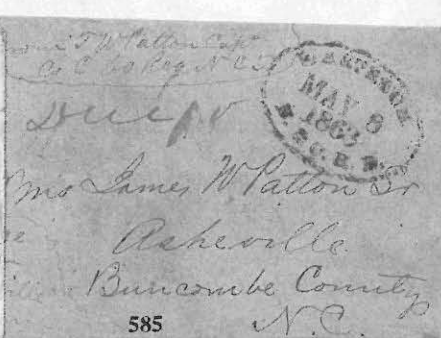 T W Patton Capt
Co C 60 Reg N C
Due 10
MAY 8
1863
Mrs James W Patton Sr
Asheville
Buncombe County
N.C.
585